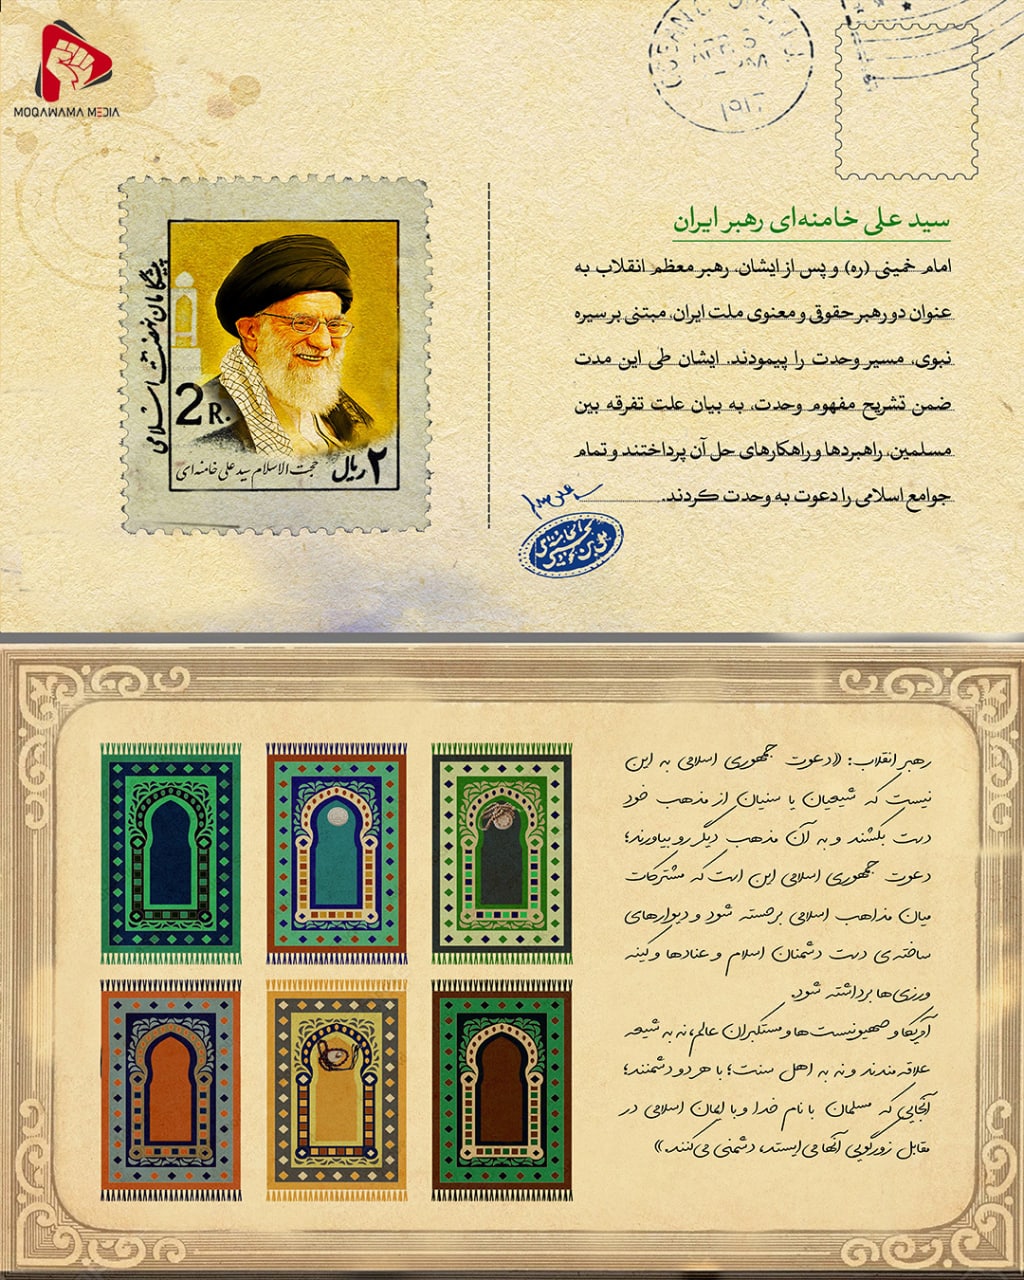 MOQAWAMA MEDIA
1917
سید علی خامنه‌ای رهبر ایران
امام خمینی (ره) و پس از ایشان، رهبر معظم انقلاب به
عنوان دو رهبر حقوقی و معنوی ملت ایران، مبتنی بر سیره
نبوی، مسیر وحدت را پیمودند. ایشان طی این مدت
ضمن تشریح مفهوم وحدت، به بیان علت تفرقه بین
مسلمین، راهبردها و راهکارهای حل آن پرداختند و تمام
جوامع اسلامی را دعوت به وحدت کردند.
پیشگامان نهضت اسلامی
2 R.
۲ ریال
حجت الاسلام سید علی خامنه‌ای
رهبر انقلاب: «دعوت جمهوری اسلامی به این
نیست که شیعیان یا سنیان از مذهب خود
دست بکشند و به آن مذهب دیگر رو بیاورند؛
دعوت جمهوری اسلامی این است که مشترکات
میان مذاهب اسلامی برجسته شود و دیوارهای
ساخته‌ی دست دشمنان اسلام و عنادها و کینه
ورزی‌ها برداشته شود.
آمریکا و صهیونیست‌ها و مستکبران عالم، نه به شیعه
علاقه‌مندند و نه به اهل سنت؛ با هر دو دشمنند؛
آنجایی که مسلمان با نام خدا و با ایمان اسلامی در
مقابل زورگویی آنها می‌ایستد، دشمنی می‌کنند.»